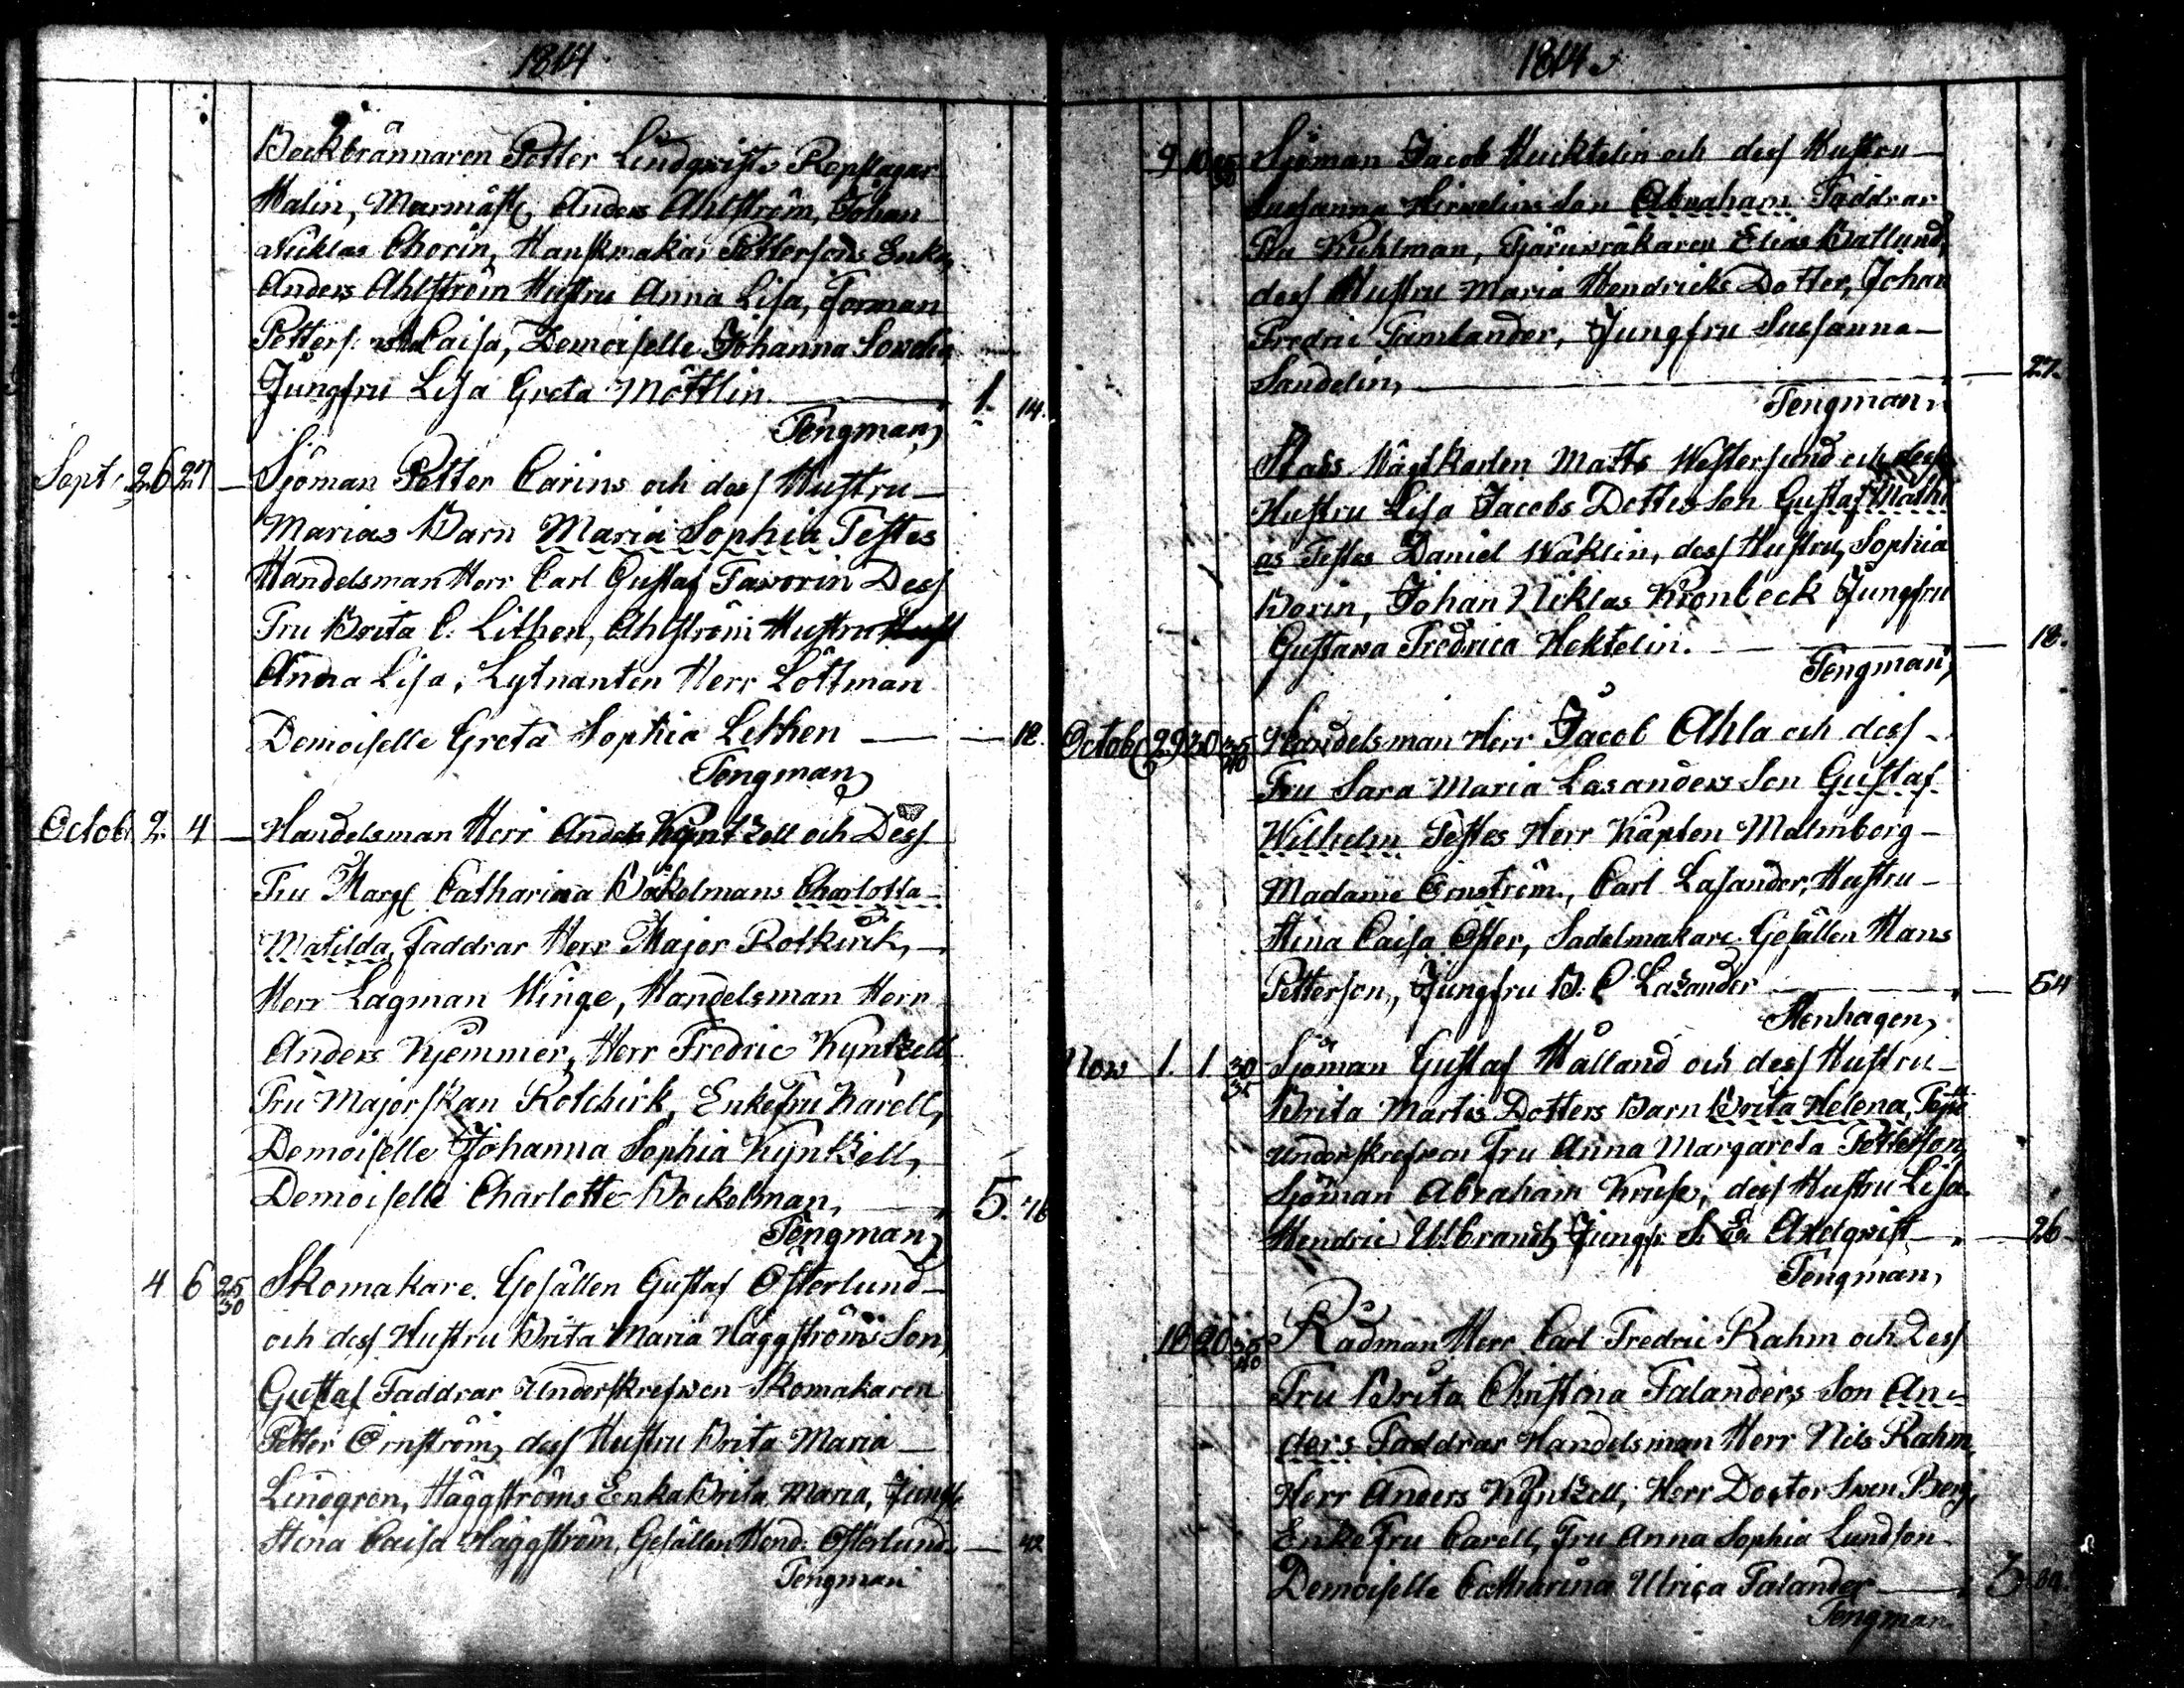 1814
Beckbrännaren Petter Lindqvist, Repslagar
Malin, Marmäst, Anders Ahlström, Johan
Nicklas Chorin, Hanskmakar Pettersons Enka,
Anders Ahlström Hustru Anna Lisa, Forman
Petters. Caisa, Demoiselle Johanna
Jungfru Lisa Greta Möttlin 1. 14.
Tengman,
Sept. 26 27 Sjöman Petter Carins och dess Hustru
Marias Barn Maria Sophia Testes
Handelsman Herr Carl Gustaf Favorin Dess
Fru Brita C. Lithen, Ahlström Hustru
Anna Lisa, Lytnanten Herr Löttman
Demoiselle Greta Sophia Lithen 12.
Tengman,
Octob. 2. 4 Handelsman Herr Anders Kyntzell och Dess
Fru Marg. Catharina Båkelmans Charlotta
Matilda, Faddrar Herr Major Rotkirik,
Herr Lagman Winge, Handelsman Herr
Anders Kjemmer, Herr Fredric Kyntzell,
Fru Majorskan Rotchirk, Enkefru Karell,
Demoiselle Johanna Sophia Kyntzell,
Demoiselle Charlotte Bockelman, 5. 16
Tengman,
4 6 25 30 Skomakare Gesällen Gustaf Österlund
och dess Hustru Brita Maria Häggströms Son
Gustaf Faddrar Underskrefwen Skomakaren
Petter Örnström, dess Hustru Brita Maria
Lindgren, Häggströms Enka Brita Maria, Jungfr
Stina Caisa Häggström, Gesällen Hend. Österlund 42
Tengman
1814
9 10 Sjöman Jacob Hecktelin och dess Hustru
Susanna Hirvelins Son Abraham Faddrar
Fru Kuhlman, Tjäruwräkaren Elias Batlund,
dess Hustru Maria Hendricks Dotter, Johan
Fredric Tamlander, Jungfru Susanna
Sandelin, 27.
Tengman,
Stads Wagtkarlen Matts Westersund och dess
Hustru Lisa Jacobs Dotters Son Gustaf Mathi
as Testes Daniel Wäklin, dess Hustru, Sophia
Borin, Johan Niklas Kronbeck Jungfru
Gustawa Fredrica Hektelin. 18.
Tengman,
Octob 29 30 35 40 Handelsman Herr Jacob Ahla och dess
Fru Sara Maria Lasanders Son Gustaf
Wilhelm Testes Herr Kapten Malmborg
Madame Örnström, Carl Lasander, Hustru
Stina Caisa Öster, Sadelmakare Gesällen Hans
Petterson, Jungfru B. C. Lasander 54
Stenhagen,
Nov 1. 1. 30 35 Sjöman Gustaf Målland och dess Hustru
Brita Marts Dotters Barn Brita Helena,
Underskrefwen Fru Anna Margareta Petterson,
Sjöman Abraham Kruse, dess Hustru Lisa
Hendric Ulbrandt, Jungfr. S. E. Axelqvist 26
Tengman,
18 20 35 40 Rådman Herr Carl Fredric Rahm och Dess
Fru Brita Christina Falanders Son An-
ders Faddrar Handelsman Herr Nils Rahm,
Herr Anders Kyntzell, Herr Doctor Swen Berg,
Enkefru Carell, Fru Anna Sophia Lundson
Demoiselle Catharina Ulrica Falander 3
Tengman